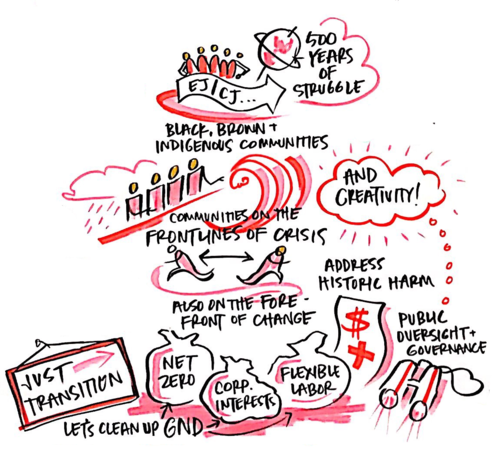 500
YEARS
OF
STRUGGLE
EJ/CJ...
BLACK, BROWN +
INDIGENOUS COMMUNITIES
AND
CREATIVITY!
COMMUNITIES ON THE
FRONTLINES OF CRISIS
ADDRESS
HISTORIC HARM
ALSO ON THE FORE-
FRONT OF CHANGE
$
+
PUBLIC
OVERSIGHT +
GOVERNANCE
JUST
TRANSITION
NET
ZERO
CORP.
INTERESTS
FLEXIBLE
LABOR
LETS CLEAN UP GND